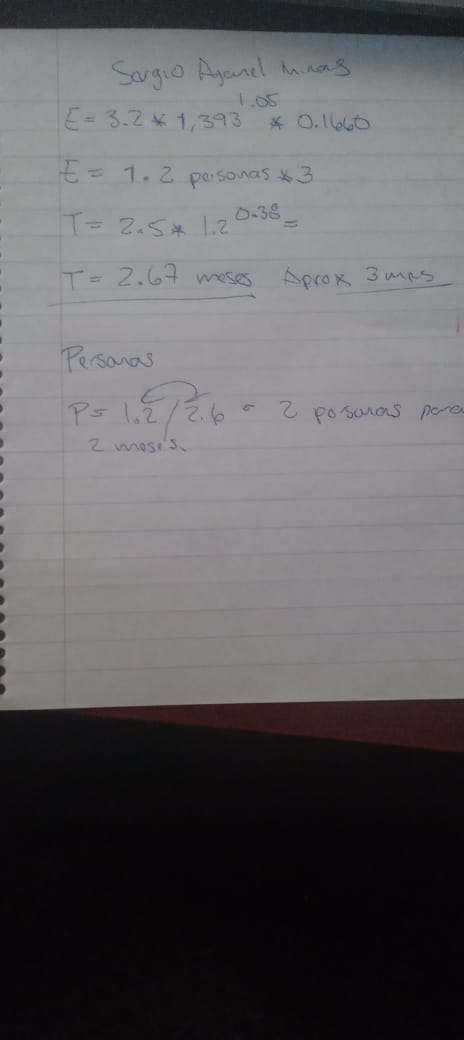 Sergio Ajanel Minas
E = 3.2 * 1,393^1.05 * 0.1660
E = 1.2 personas * 3
T = 2.5 * 1.2^0.38 =
T = 2.67 meses Aprox 3 mes
Personas
P = 1.2 / 2.6 = 2 personas para
2 meses.